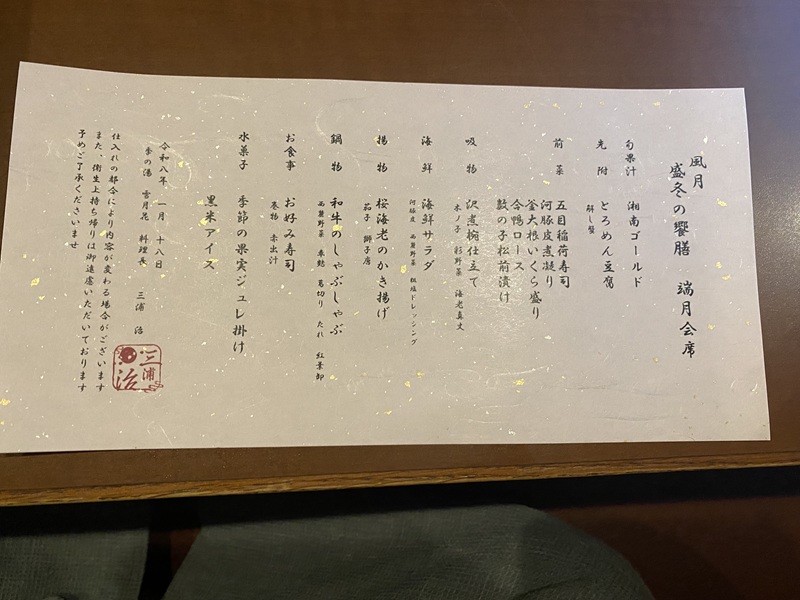 風月
盛冬の饗膳　端月会席
旬果汁　湘南ゴールド
先附　とろめん豆腐
解し蟹
前菜　五目稲荷寿司
河豚皮煮凝り
釜大根いくら盛り
合鴨ロース
数の子松前漬け
吸物　沢煮椀仕立て
木ノ子　彩野菜　海老真丈
海鮮　海鮮サラダ
河豚皮　西麓野菜　粗塩ドレッシング
揚物　桜海老のかき揚げ
茄子　獅子唐
鍋物　和牛のしゃぶしゃぶ
西麓野菜　葛切り　たれ　紅葉卸
お食事　お好み寿司
巻物　赤出汁
水菓子　季節の果実ジュレ掛け
黒米アイス
令和八年　一月　十八日
季の湯　雪月花　料理長　三浦　治
仕入れの都合により内容が変わる場合がございます
また、衛生上持ち帰りは御遠慮いただいております
予めご了承くださいませ
三浦
治